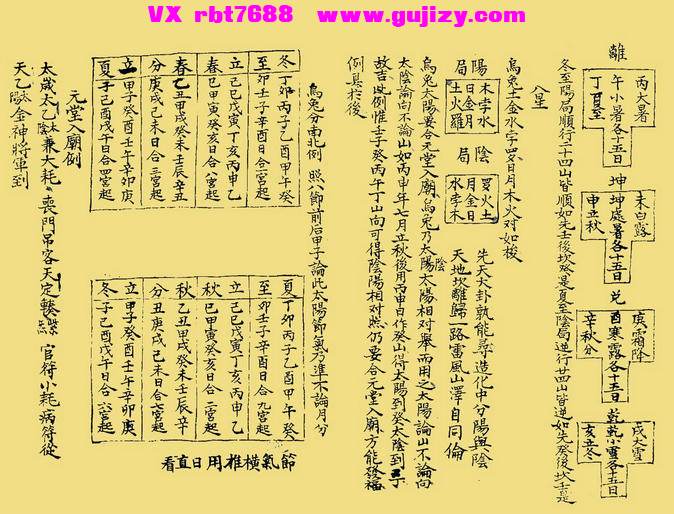 VX rbt7688 www.gujizy.com
離
丙大暑
午小暑各十五日
丁夏至
坤
未白露
坤處暑各十五日
申立秋
兌
庚霜降
酉寒露各十五日
辛秋分
乾
戌大雪
乾小雪各十五日
亥立冬
冬至陽局順行二十四山皆順如先壬後坎癸是夏至陰局逆行廿四山皆逆如先癸後坎壬是
入星
烏兔土金水字四名日月木火对如梭
先天大卦孰能尋造化中分陽與陰
天地坎離歸一路雷風山澤自同倫
陽局
木孛水
日金月
土火羅
陰局
羅火土
月金日
水孛木
烏兔太陽要合元堂入廟烏兔乃太陽太陰相对舉而用之太陽論山不論向
太陰論向不論山如丙申年七月立秋後用丙申日作癸山得太陽到癸太陰到丁
故吉此例惟壬子癸丙午丁山向可得陰陽相对照仍要合元堂入廟方能發福
例具於後
烏兔分南北例 照八節前后甲子論此太陽節氣為准不論月分
冬至
丁卯丙子乙酉甲午癸
卯壬子辛酉日合一宮起
立春
己巳戊寅丁亥丙申乙
巳甲寅癸亥日合八宮起
春分
乙丑甲戌癸未壬辰辛丑
庚戌己未日合三宮起
立夏
甲子癸酉壬午辛卯庚
子己酉戊午日合四宮起
夏至
丁卯丙子乙酉甲午癸
卯壬子辛酉日合九宮起
立秋
己巳戊寅丁亥丙申乙
巳甲寅癸亥日合二宮起
秋分
乙丑甲戌癸未壬辰辛
丑庚戌己未日合七宮起
立冬
甲子癸酉壬午辛卯庚
子己酉戊午日合六宮起
節氣橫推用日直看
元堂入廟例
太歲太乙太陰兼大耗喪門吊客天定
官符小耗病符從
天乙太陽金神將軍到